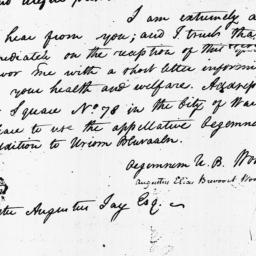 I am extremely a
hear from you; and I trust tha
mediately on the reception of this
vor me with a short letter informin
your health and welfare. Address
Square No. 78 in the City of Wa
to use the appellative Oegemnem
dition to Uriom
Oegemnem U. B. Wo
Augustus Elias Brevoort Woo
Augustus Jay Esq.